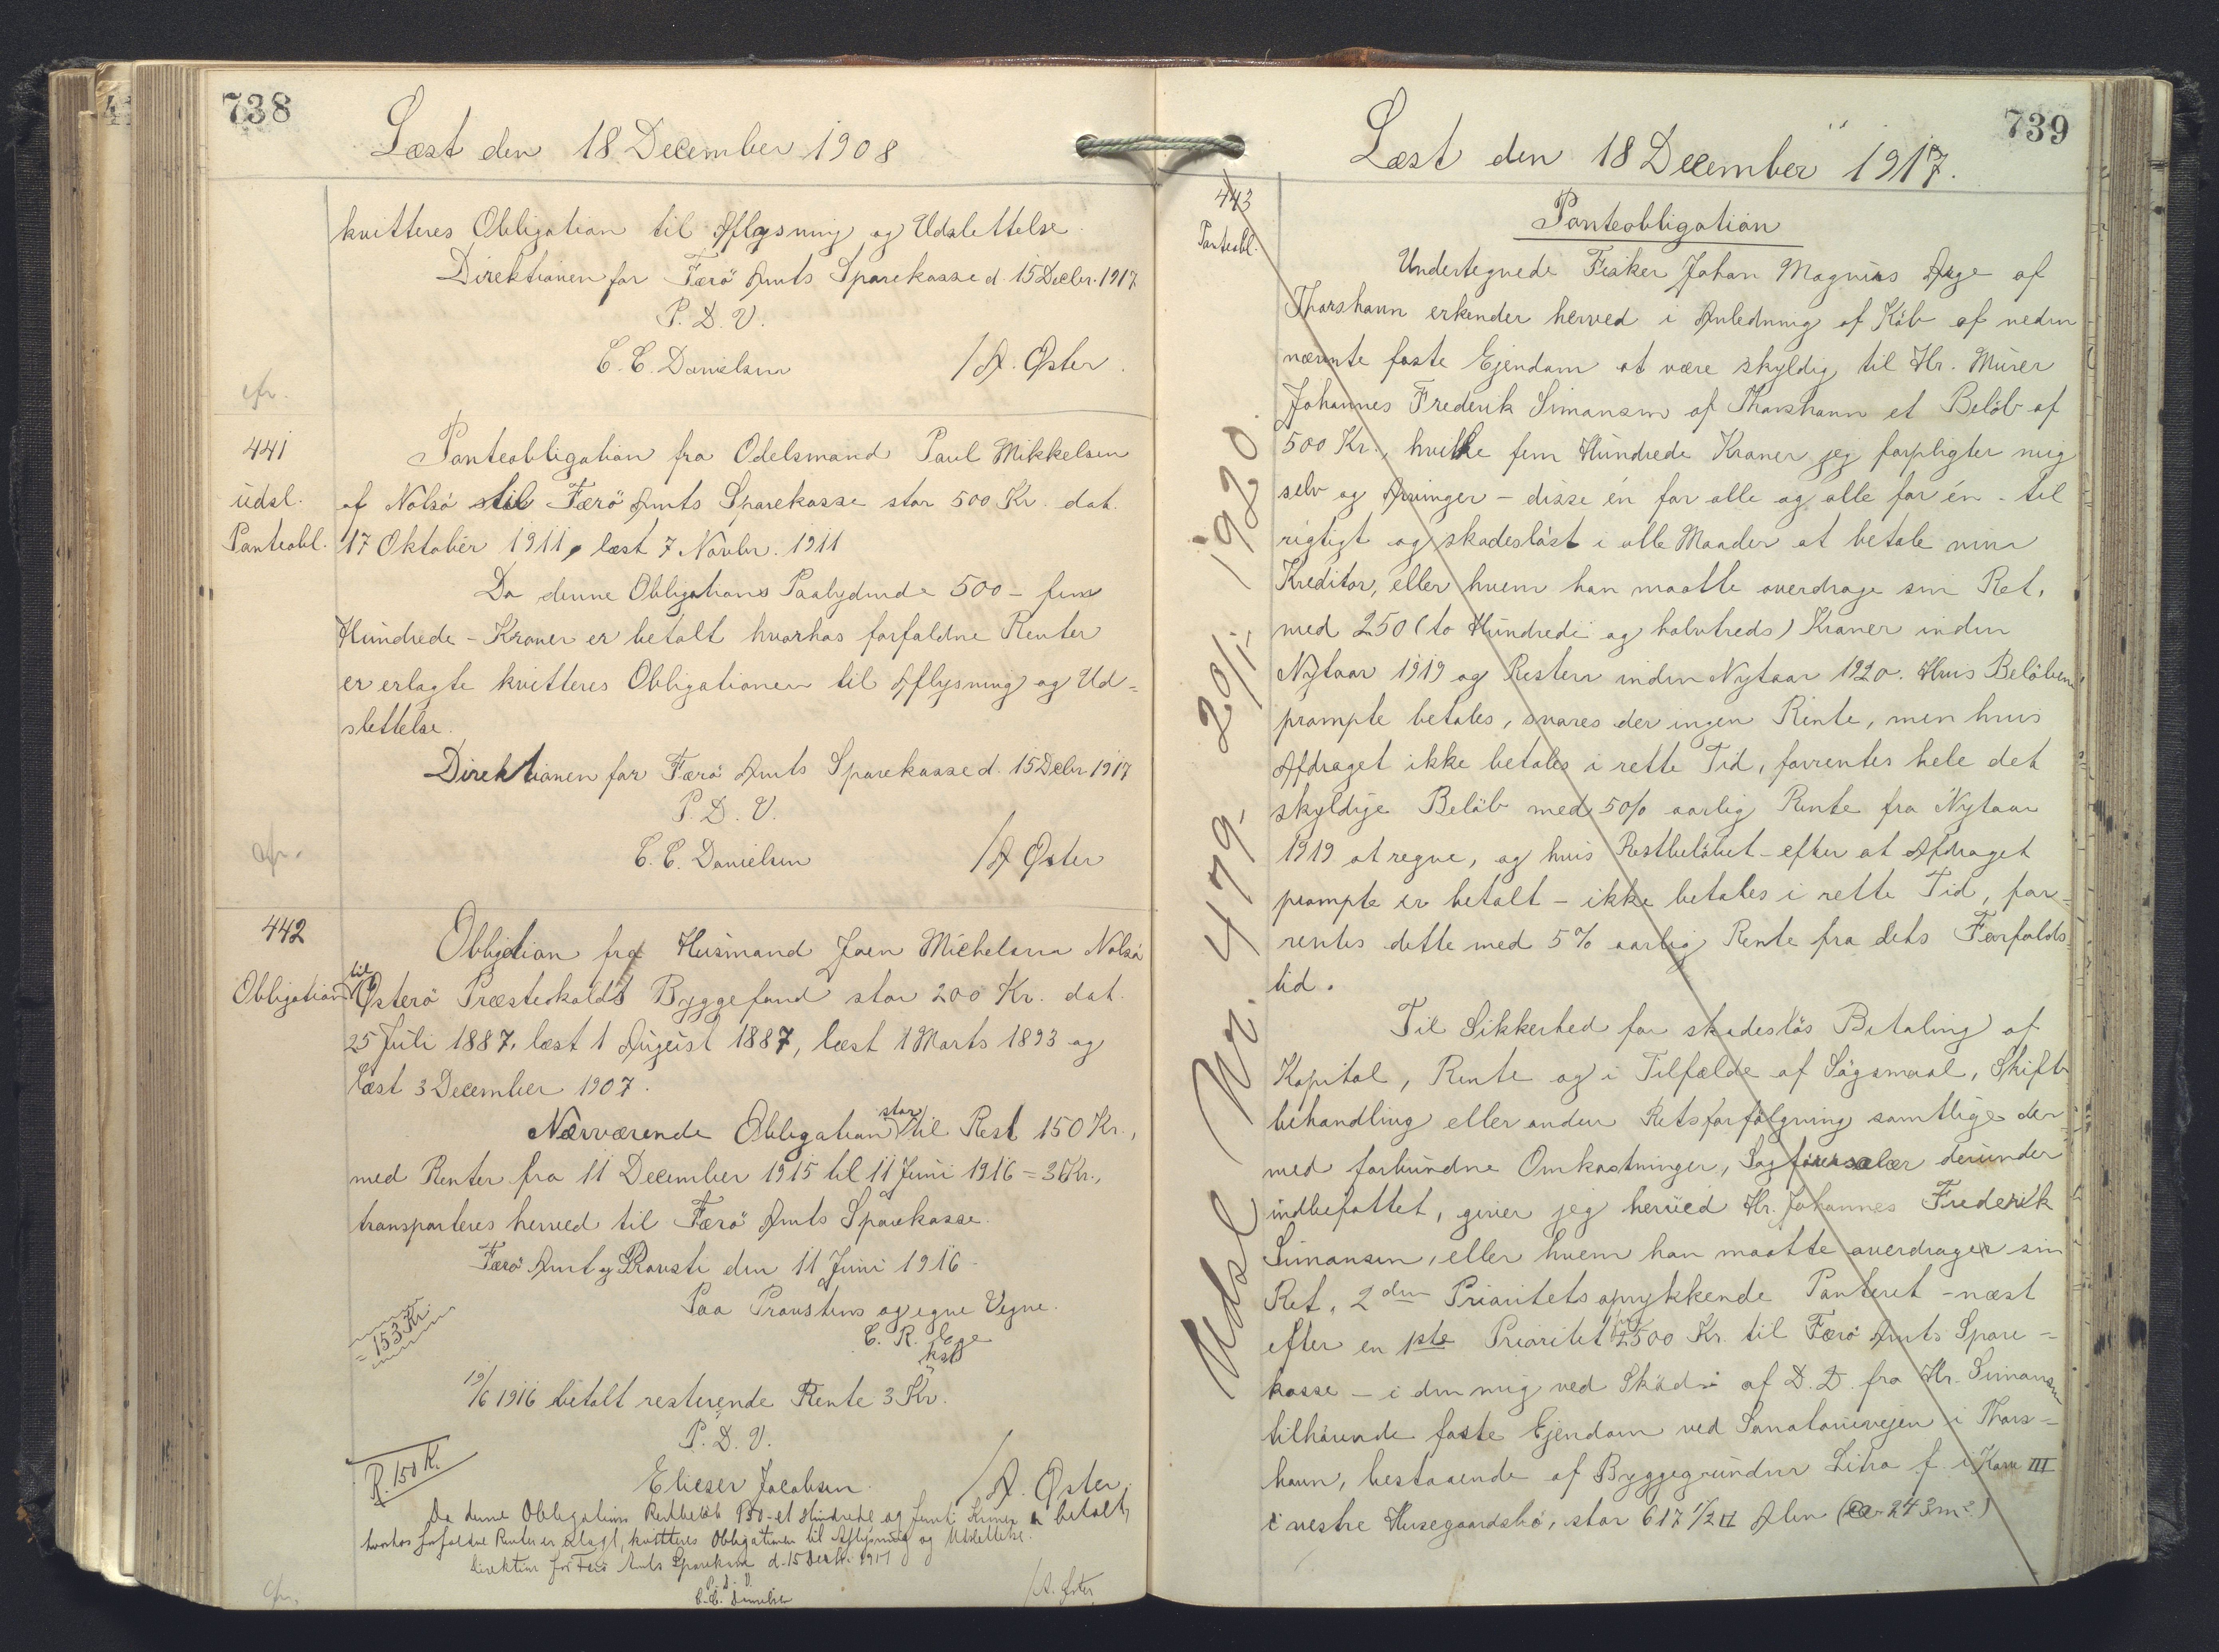 738
Læst den 18 December 1908
kvitteres Obligation til Aflysning og Udslettelse.
Direktionen for Færö Amts Sparekasse d. 15 Decbr. 1917
P. D. V.
C. C. Danielsen /A. Øster.
cfr.
441
udsl.
Panteobl.
Panteobligation fra Odelsmand Paul Mikkelsen
af Nolsö til Færö Amts Sparekasse stor 500 Kr. dat.
17 Oktober 1911, læst 7 Novbr. 1911
Da denne Obligations Paalydende 500 - fem
Hundrede - Kroner er betalt hvorhos forfaldne Renter
er erlagte kvitteres Obligationen til Aflysning og Ud=
slettelse.
Direktionen for Færö Amts Sparekasse d. 15 Decbr 1917
P. D. V.
C. C. Danielsen /A Øster
cfr.
442
Obligation
Obligation fra Husmand Joen Michelsen Nolsö
til Østerö Præstekalds Byggefond stor 200 Kr. dat.
25 Juli 1887, læst 1 August 1887, læst 1 Marts 1893 og
læst 3 December 1907.
Nærværende Obligation stor til Rest 150 Kr.,
med Renter fra 11 December 1915 til 11 Juni 1916 = 3 Kr.,
transporteres herved til Færö Amts Sparekasse.
Færö Amt og Provsti den 11 Juni 1916.
Paa Provstens og egne Vegne.
C. R. Lege
kst
= 153 Kr
19/6 1916 betalt resterende Rente 3 Kr.
P. D. V.
R. 150 K.
Elieser Jacobsen. /A. Øster.
Da denne Obligations Restbeløb 150 - et Hundrede og femti Kroner er betalt,
hvorhos forfaldne Renter er erlagt, kvitteres Obligationen til Aflysning og Udslettelse.
Direktion for Færö Amts Sparekasse d. 15 Decbr. 1917
P. D. V.
C. C. Danielsen /A. Øster
cfr.
739
Læst den 18 December 1917.
443
Panteobl.
Panteobligation
Undertegnede Fisker Johan Magnus Arge af
Thorshavn erkender herved i Anledning af Køb af neden
nævnte faste Ejendom at være skyldig til Hr. Murer
Johannes Frederik Simonsen af Thorshavn et Belöb af
500 Kr., hvilke fem Hundrede Kroner jeg forpligter mig
selv og Arvinger - disse én for alle og alle for én - til
rigtigt og skadeslöst i alle Maader at betale min
Kreditor, eller hvem han maatte overdrage sin Ret,
med 250 (to Hundrede og halvtreds) Kroner inden
Nytaar 1919 og Resten inden Nytaar 1920. Hvis Belöbene
prompte betales, svares der ingen Rente, men hvis
Afdraget ikke betales i rette Tid, forrentes hele det
skyldige Belöb med 5 % aarlig Rente fra Nytaar
1919 at regne, og hvis Restbelöbet - efter at Afdraget
prompte er betalt - ikke betales i rette Tid, for=
rentes dette med 5 % aarlig Rente fra dets Forfalds=
tid.
Til Sikkerhed for skadeslös Betaling af
Kapital, Rente og i Tilfælde af Sögsmaal, Skifte
behandling eller anden Retsforfölgning samtlige der=
med forbundne Omkostninger, Sagförersalær derunder
indbefattet, giver jeg herved Hr. Johannes Frederik
Simonsen, eller hvem han maatte overdrage sin
Ret, 2den Prioritets oprykkende Panteret - næst
efter en 1ste Prioritet 2500 Kr. til Færö Amts Spare=
kasse - i den mig ved Sköde af D. D. fra Hr. Simonsen
tilhörende faste Ejendom ved Sanatorievejen i Thors=
havn, bestaaende af Byggegrunden Litra f. i Kam III
i vestre Husegaardsbö, stor 617 1/2 □ Alen (ca 243 m²)
Udsl Nr. 479, 29/1 - 1920.